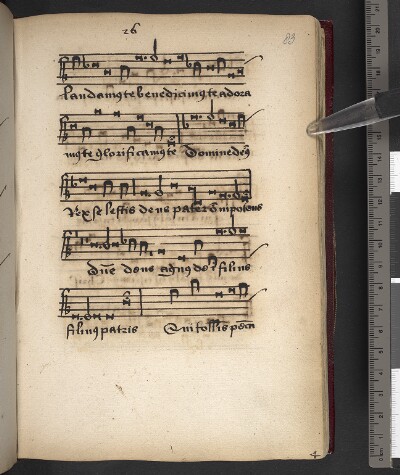 26
83
laudamꝯ te benedicimꝯ te adora
mꝯ te glorificamꝯ te Domine deꝯ
Rex selestis deus pater om̄ipotens
Dn̄e deus agnꝯ dei filius
filiuꝯ patris Qui tollis pecca
4